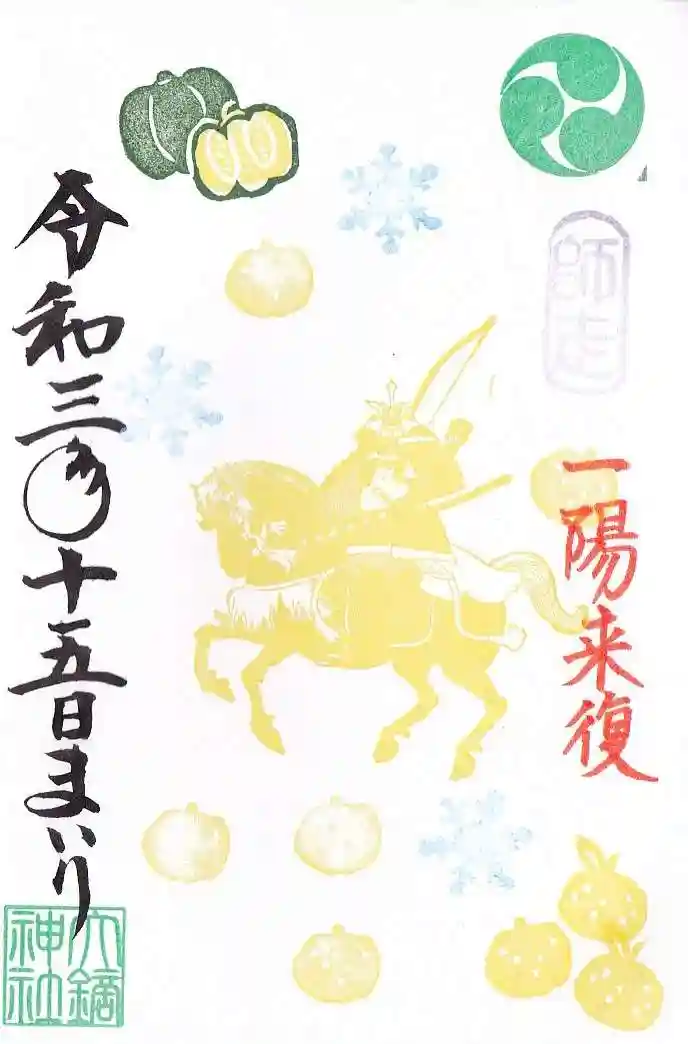 師走
一陽来復
令和三年十五日まいり
大鏑神社